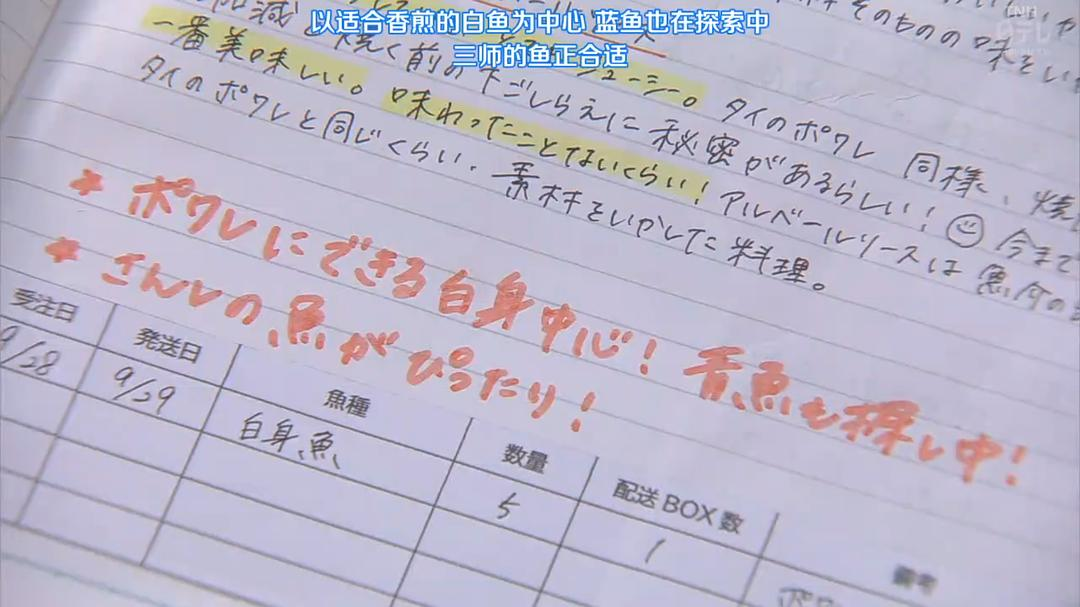 以适合香煎的白鱼为中心 蓝鱼也在探索中
三师的鱼正合适
そのものの味をいか
加減
焼く前の下ごしらえに秘密があるらしい！ 今まで
ジューシー。 タイのポワレ 同様、焼
一番美味しい。 味わったことないくらい！ アルベールリースは魚介の
タイのポワレと同じくらい、素材をいかした料理。
* ポワレにできる白身中心！ 青魚も探し中！
* さんしの魚がぴったり！
受注日 発送日 魚種 数量 配送BOX数 備考
9/28 9/29 白身魚 5 1